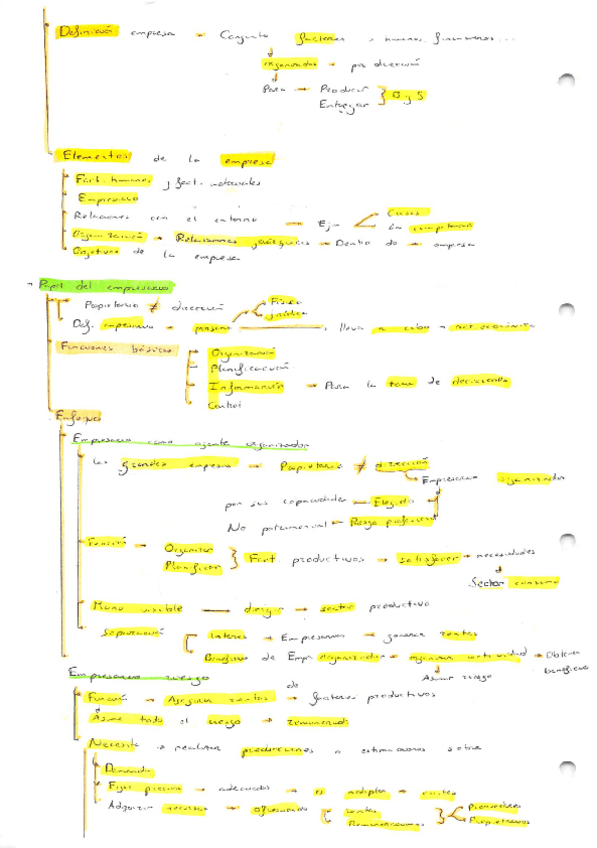 Definición empresa → Conjunto factores → humanos, financieros...
organizados → por dirección
Para → Producir } B y S
Entregar
Elementos de la empresa
Fact. humanos y fact. materiales
Empresario
Relaciones con el entorno → Ejm
Organización → Relaciones jerárquicas → Dentro de → empresa
Objetivos de la empresa
→ Papel del empresario
Propietario ≠ dirección
Física
Jurídica
Def. empresario → persona lleva a cabo → act. económica
Funciones básicas
Organización
Planificación
Información → Para la toma de decisiones
Control
Enfoque
Empresario como agente organizador
Las grandes empresa → Propietario ≠ dirección
Empresario organizador
por sus capacidades ← Elegido
No patrimonial ← Riesgo profesional
Función → Organizar
Planificar } Fact productivos → satisfacer → necesidades
Sector consumo
Mano visible → dirigir → sector productivo
Separación
Interes → Empresarios → ganar rentas
Beneficio de Empr organizador → Obtener beneficio
Asumir riesgo
Empresario riesgo
Función → Asegurar rentas → de factores productivos
Asume todo el riesgo → remunerado
Necesita → realizar predicciones o estimaciones sobre
Demanda
Fijar precios → adecuados
Adquirir recursos → ofreciendo
rentas
Remuneraciones
Proveedores
Propietarios